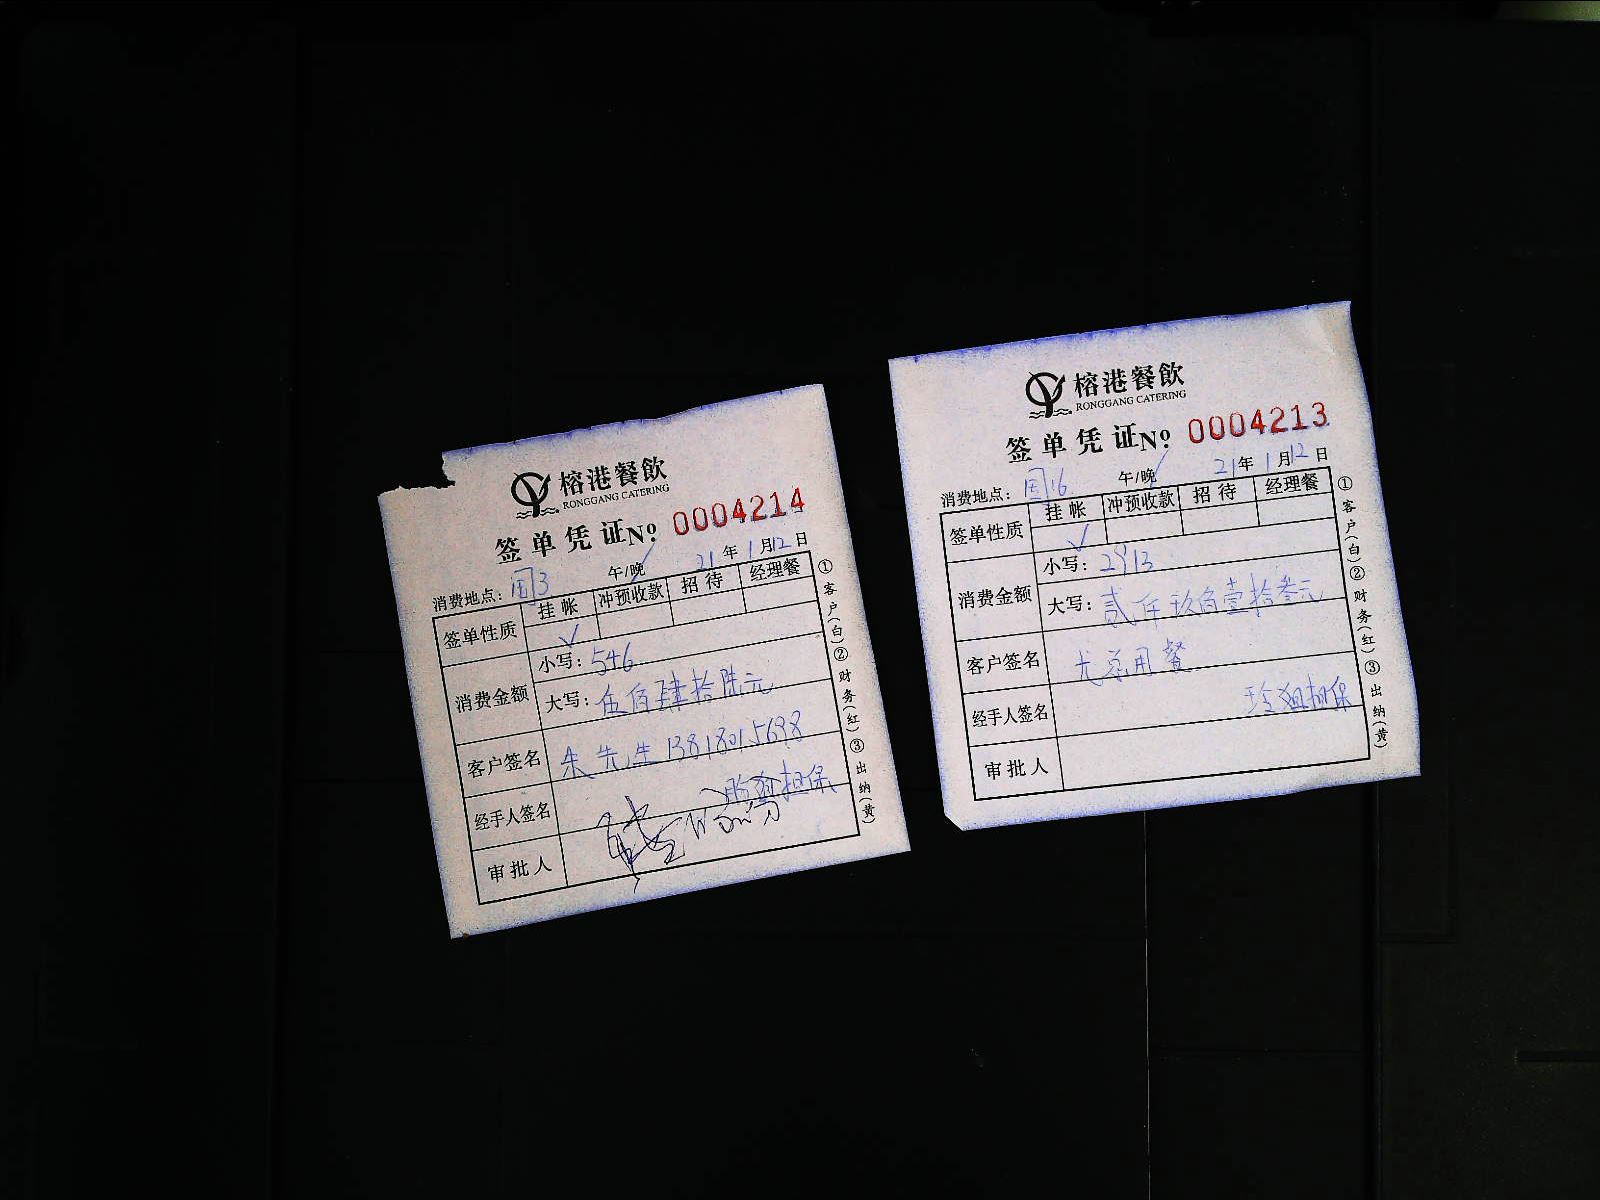 榕港餐飲
RONGGANG CATERING
签单凭证 № 0004214
消费地点: 3 午/晚 21年1月12日
签单性质 挂帐 冲预收款 招待 经理餐
✓
消费金额 小写: 546
大写: 伍佰肆拾陆元
客户签名 朱先生 13818015698
经手人签名 担保
审批人
①客户(白)②财务(红)③出纳(黄)
榕港餐飲
RONGGANG CATERING
签单凭证 № 0004213
消费地点: 16 午/晚 21年1月12日
签单性质 挂帐 冲预收款 招待 经理餐
✓
消费金额 小写: 2913
大写: 贰仟玖佰壹拾叁元
客户签名 尤总用餐
经手人签名 玲姐担保
审批人
①客户(白)②财务(红)③出纳(黄)